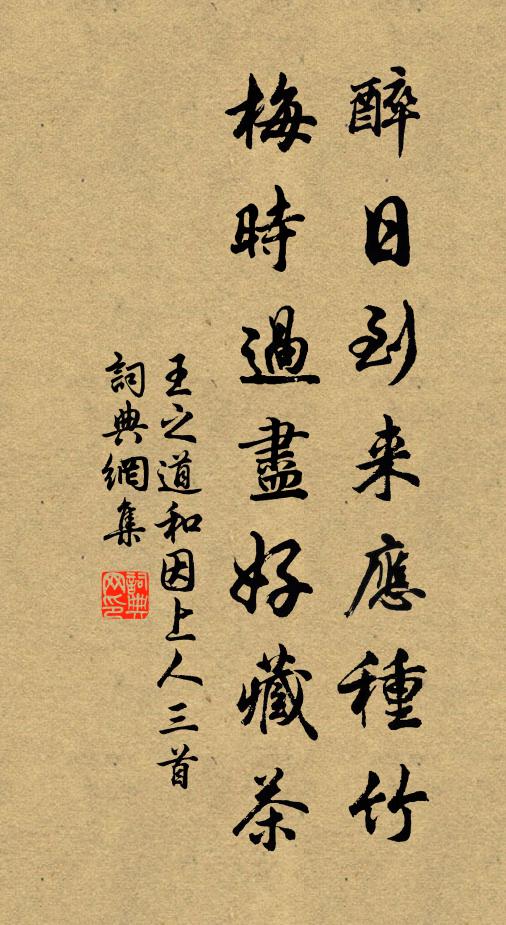 醉日到来應種竹
梅時過盡好藏茶
王之道和因上人三首
詞典網集
詞典网印